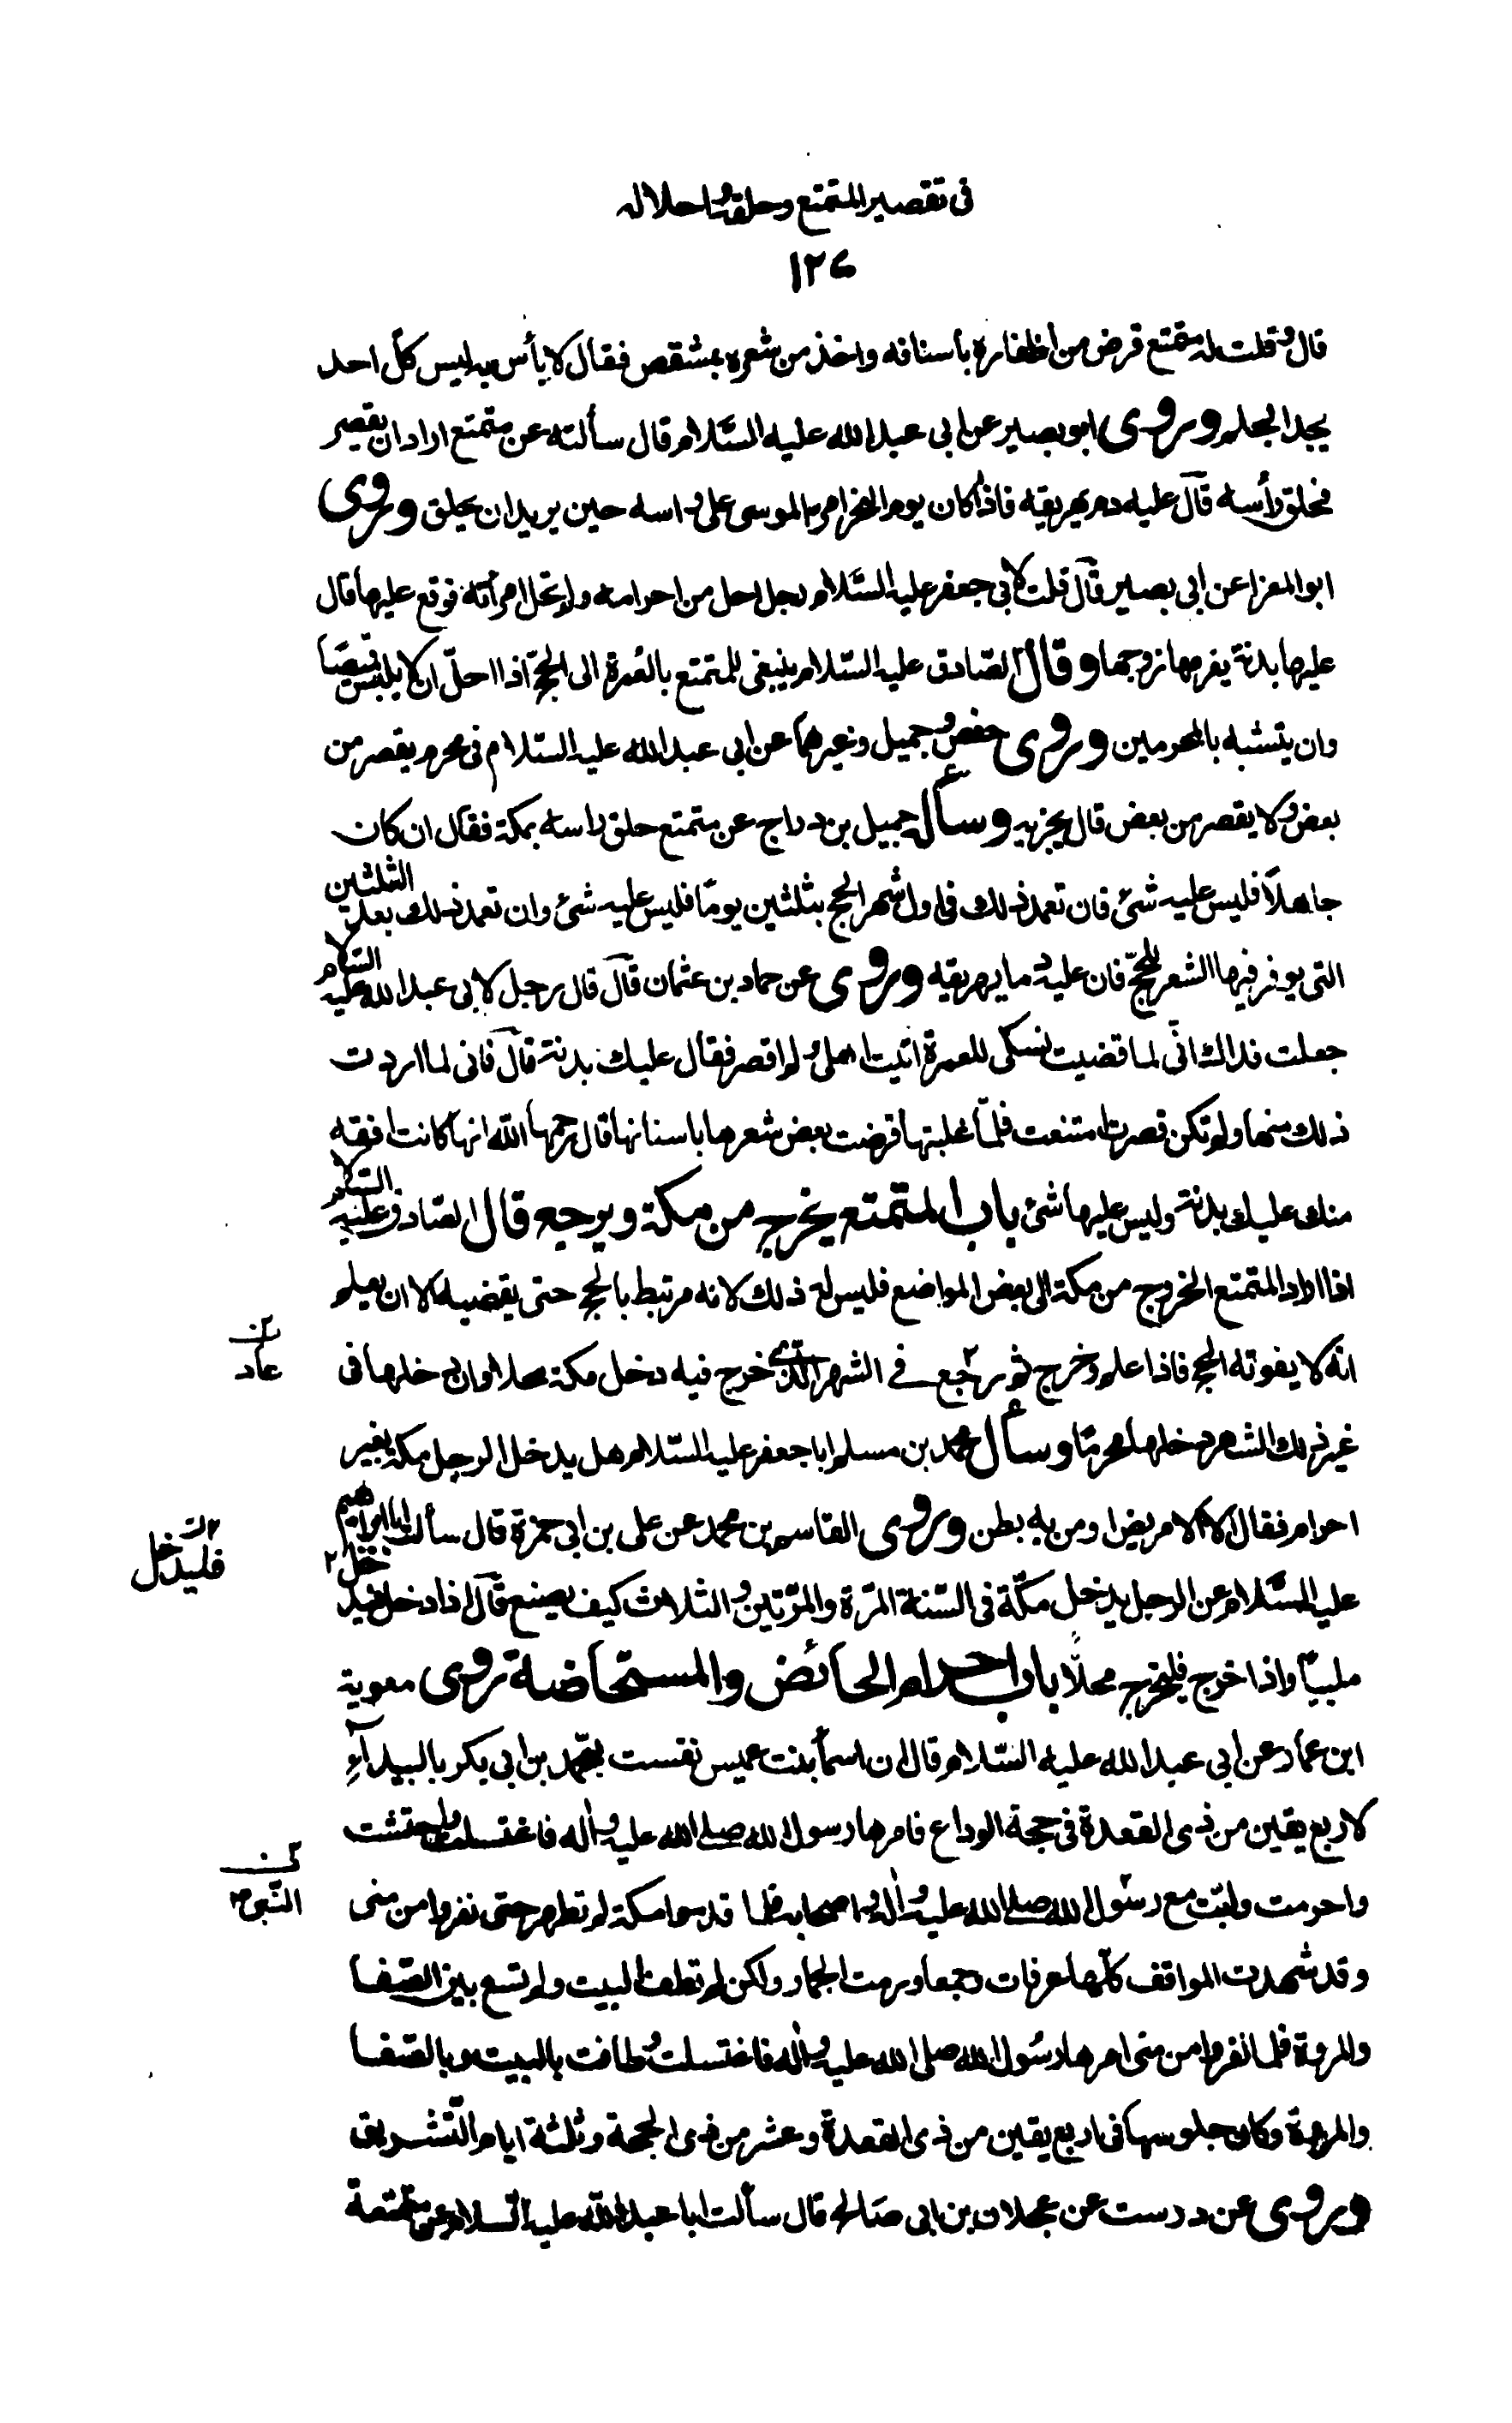 في تقصير المتمتع وحلقه واحلاله
١٢٧
قال وقلت له متمتع قرض من اظفاره باسنانه واخذ من شعره بمشقص فقال لا بأس به ليس كل احد
يجد الجلم وروى ابو بصير عن ابي عبد الله عليه السلام قال سألته عن متمتع اراد ان يقصر
فحلق رأسه قال عليه دم يهريقه فاذا كان يوم النحر امر الموسى على راسه حين يريد ان يحلق وروى
ابو المعزا عن ابي بصير قال قلت لابي جعفر عليه السلام رجل احل من احرامه ولم تحل امرأته فوقع عليها قال
عليها بدنة يغرمها زوجها وقال الصادق عليه السلام ينبغي للمتمتع بالعمرة الى الحج اذا احل ان لا يلبس قميصا
وان يتشبه بالمحرمين وروى حفص وجميل وغيرهما عن ابي عبد الله عليه السلام في محرم يقصر من
بعض ولا يقصر من بعض قال يجزيه وسأل جميل بن دراج عن متمتع حلق راسه بمكة فقال ان كان
جاهلا فليس عليه شئ فان تعمد ذلك في اول شهر الحج بثلثين يوما فليس عليه شئ وان تعمد ذلك بعد الثلثين
التي يوفر فيها الشعر للحج فان عليه دما يهريقه وروى عن حماد بن عثمان قال قال رجل لابي عبد الله عليه السلام
جعلت فداك اني لما قضيت نسكي للعمرة اتيت اهلي ولم اقصر فقال عليك بدنة قال فاني لما اردت
ذلك منها ولم تكن قصرت امتنعت فلما غلبتها قرضت بعض شعرها باسنانها قال رحمها الله انها كانت افقه
منك عليك بدنة وليس عليها شئ باب المتمتع يخرج من مكة ويرجع قال الصادق عليه السلام
اذا اراد المتمتع الخروج من مكة الى بعض المواضع فليس له ذلك لانه مرتبط بالحج حتى يقضيه الا ان يعلم
انه لا يفوته الحج فاذا علم وخرج ثم رجع في الشهر الذي خرج فيه دخل مكة محلا وان دخلها في
عاد
غير ذلك الشهر دخلها محرما وسأل محمد بن مسلم ابا جعفر عليه السلام هل يدخل الرجل مكة بغير
احرام فقال لا الا مريض او من به بطن وروى القاسم بن محمد عن علي بن ابي حمزة قال سألت ابا ابراهيم
عليه السلام عن الرجل يدخل مكة في السنة المرة والمرتين والثلاث كيف يصنع قال اذا دخل فليدخل
فليدخل
ملبيا واذا خرج فليخرج محلا باب احرام الحائض والمستحاضة روى معوية
ابن عمار عن ابي عبد الله عليه السلام قال ان اسماء بنت عميس نفست بمحمد بن ابي بكر بالبيداء
لاربع بقين من ذي القعدة في حجة الوداع فامرها رسول الله صلى الله عليه واله فاغتسلت واحتشت
واحرمت ولبت مع رسول الله صلى الله عليه واله واصحابه فلما قدموا مكة لم تطهر حتى نفروا من منى
النبي ص
وقد شهدت المواقف كلها عرفات وجمعا ورمت الجمار ولكن لم تطف بالبيت ولم تسع بين الصفا
والمروة فلما نفروا من منى امرها رسول الله صلى الله عليه واله فاغتسلت وطافت بالبيت وبالصفا
والمروة وكان جلوسها في اربع بقين من ذي القعدة وعشر من ذي الحجة وثلثة ايام التشريق
وروى عن درست عن عجلان بن ابي صالح قال سألت ابا عبد الله عليه السلام عن متمتعة